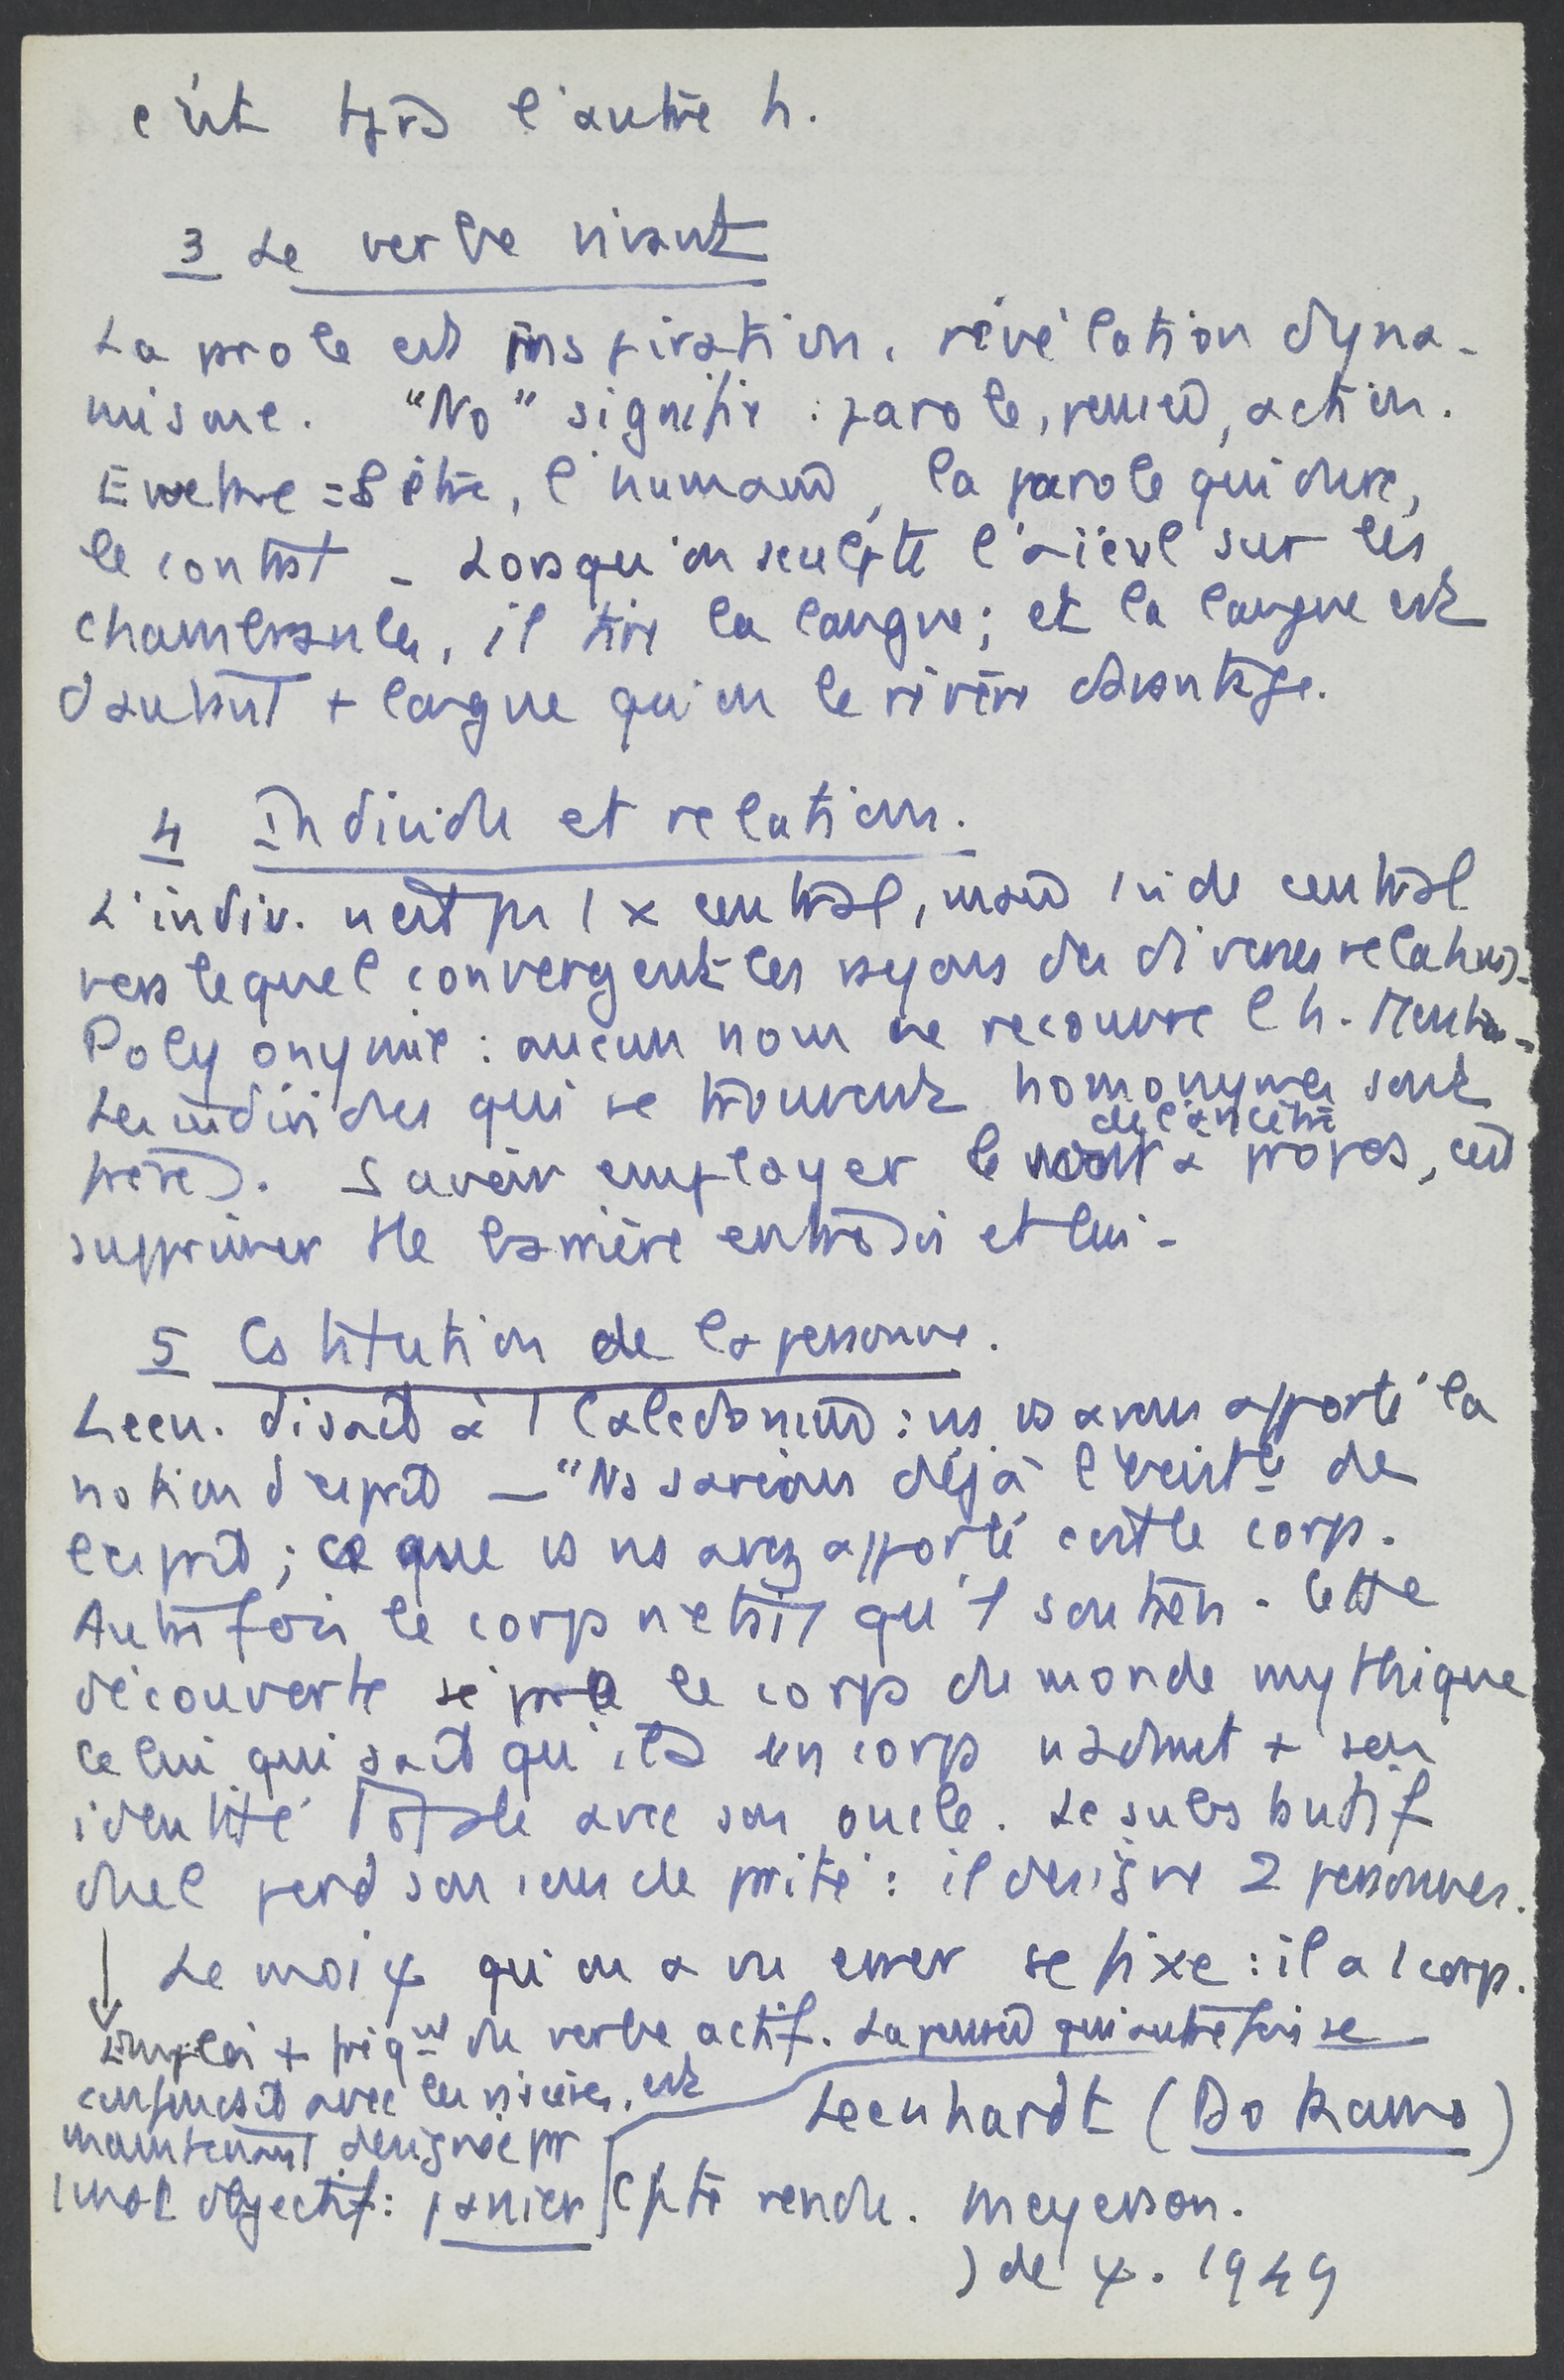 c'est tjrs l'autre h.
3 Le verbe vivant
La parole est inspiration, révélation dyna-
misme. "No" signifie : parole, pensée, action.
Ewekwe = l'être, l'humain, la parole qui dure,
le contrat - Lorsqu'on sculpte l'aïeul sur les
chambranles, il tire la langue ; et la langue est
d'autant + longue qu'on le révère davantage.
4 Individu et relations.
L'indiv. n'est pas 1 x central, mais vide central
vers lequel convergent les rayons des diverses relations.
Polyonymie : aucun nom ne recouvre l'h.
Les individus qui se trouvent homonymes sont
frères. Savoir employer le nom de l'ancêtre à propos, c'est
supprimer tte barrière entre soi et lui -
5 Cstitution de la personne.
Leen. disait à 1 Calédonien : ns vs avons apporté la
notion d'esprit — "Ns savions déjà l'existce de
l'esprit ; ce que vs ns avez apporté c'est le corps.
Autrefois le corps n'était qu'1 soutien. Cette
découverte sépare le corps du monde mythique
Celui qui sait qu'il a un corps n'admet + son
identité totale avec son oncle. Le substantif
duel perd son sens de parité : il désigne 2 personnes.
↓ Le moi ψ qu'on a vu errer se fixe : il a 1 corps.
Emploi + fréqnt du verbe actif. La pensée qui autrefois se
confondait avec les viscères, est
maintenant désignée par
1 mot objectif : panier
Leenhardt (Do Kamo)
Cpte rendu. Meyerson.
J de ψ. 1949